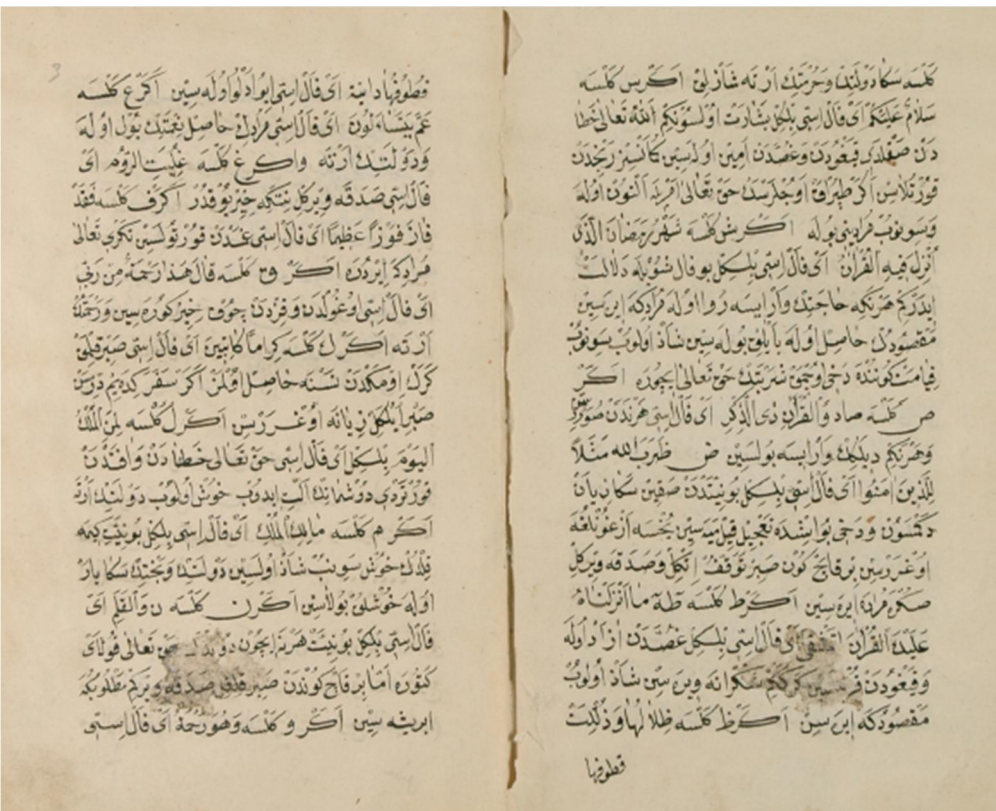 كلسه سكا دولتك وحرمتك ارته شاذلق اكر س كلسه
سلام عليكم اى فال استى بلكل بشارت اولسونكم الله تعالى خطا
دن صقلدى قيغودن وغصدن امين اوله سين
قورتلاس اكر طپراق وجلرسك حق تعالى امرينه النون اوله
وسويوب مرادينى بوله اكر ش كلسه شهر رمضان الذى
انزل فيه القرآن اى فال استى بلكل بو فال شويله دلالت
ايدركم هر نكه حاجتك وارايسه روا اوله مرادكه ايره سين
مقصودك حاصل اوله بايلق بوله سين شاذ اولوب سويوب
قيامت كوننده دخى اوچمق شربتك حق تعالى ايچوره اكر
ص كلسه صاد والقرآن ذى الذكر اى فال استى هر ندن
وهر نكم ديلكك وارايسه بولسين ض ضرب الله مثلا
للذين امنوا اى فال استى بلكل بو نيتدن صقين سكا زيان
دكمسون ودخى بو ايشده تعجيل قيلميه سين
اوغررسين بر قاچ كون صبر توقف اتكل وصدقه ويركل
صكره مراده ايره سين اكر ط كلسه طه ما انزلناه
عليك القرآن لتشقى اى فال استى بلكل غصدن ازاد اوله
وقيغودن شكرانه ويره سين شاذ اولوب
مقصودكه ايره سين اكر ظ كلسه ظلالها وذللت
قطوفها
قطوفها دانية اى فال استى ايو ادلو اوله سين اكر ع كلسه
عم يتساءلون اى فال استى مرادك حاصل نعمتك بول اوله
ودولتك ارته واكر غ كلسه غلبت الروم اى
فال استى صدقه ويركل نيتكه خير يوقدر اكر ف كلسه فقد
فاز فوزا عظيما اى فال استى غمدن قورتولسين تكرى تعالى
مرادكه ايردره اكر ق كلسه قال هذا رحمة من ربى
اى فال استى اوغولدن وقزدن چوق خير كوره سين ورحمتك
ارته اكر ك كلسه كراما كاتبين اى فال استى صبر قلمق
كرك اومكدن نسنه حاصل اولمز اكر سفر كديم درسن
صبر ايلكل زيانه اوغررسن اكر ل كلسه لمن الملك
اليوم بلكل اى فال استى حق تعالى خطادن وافتدن
قورتردى دوشمانك الت ايدوب خوش اولوب دولتك ارته
اكر م كلسه مالك الملك اى فال استى بلكل بو نيت كمه
قلدك خوش سوينب شاذ اولسين دولتك وبختك سكا يار
اوله خوشلق بولاسن اكر ن كلسه ن والقلم اى
فال استى بلكل بو نيت هر نه ايچون حق تعالى قولاى
كتوره اما بر قاچ كوندن صبر قلغل صدقه ويركم مطلوبكه
ايريشه سين اكر و كلسه وهو رحمة اى فال استى